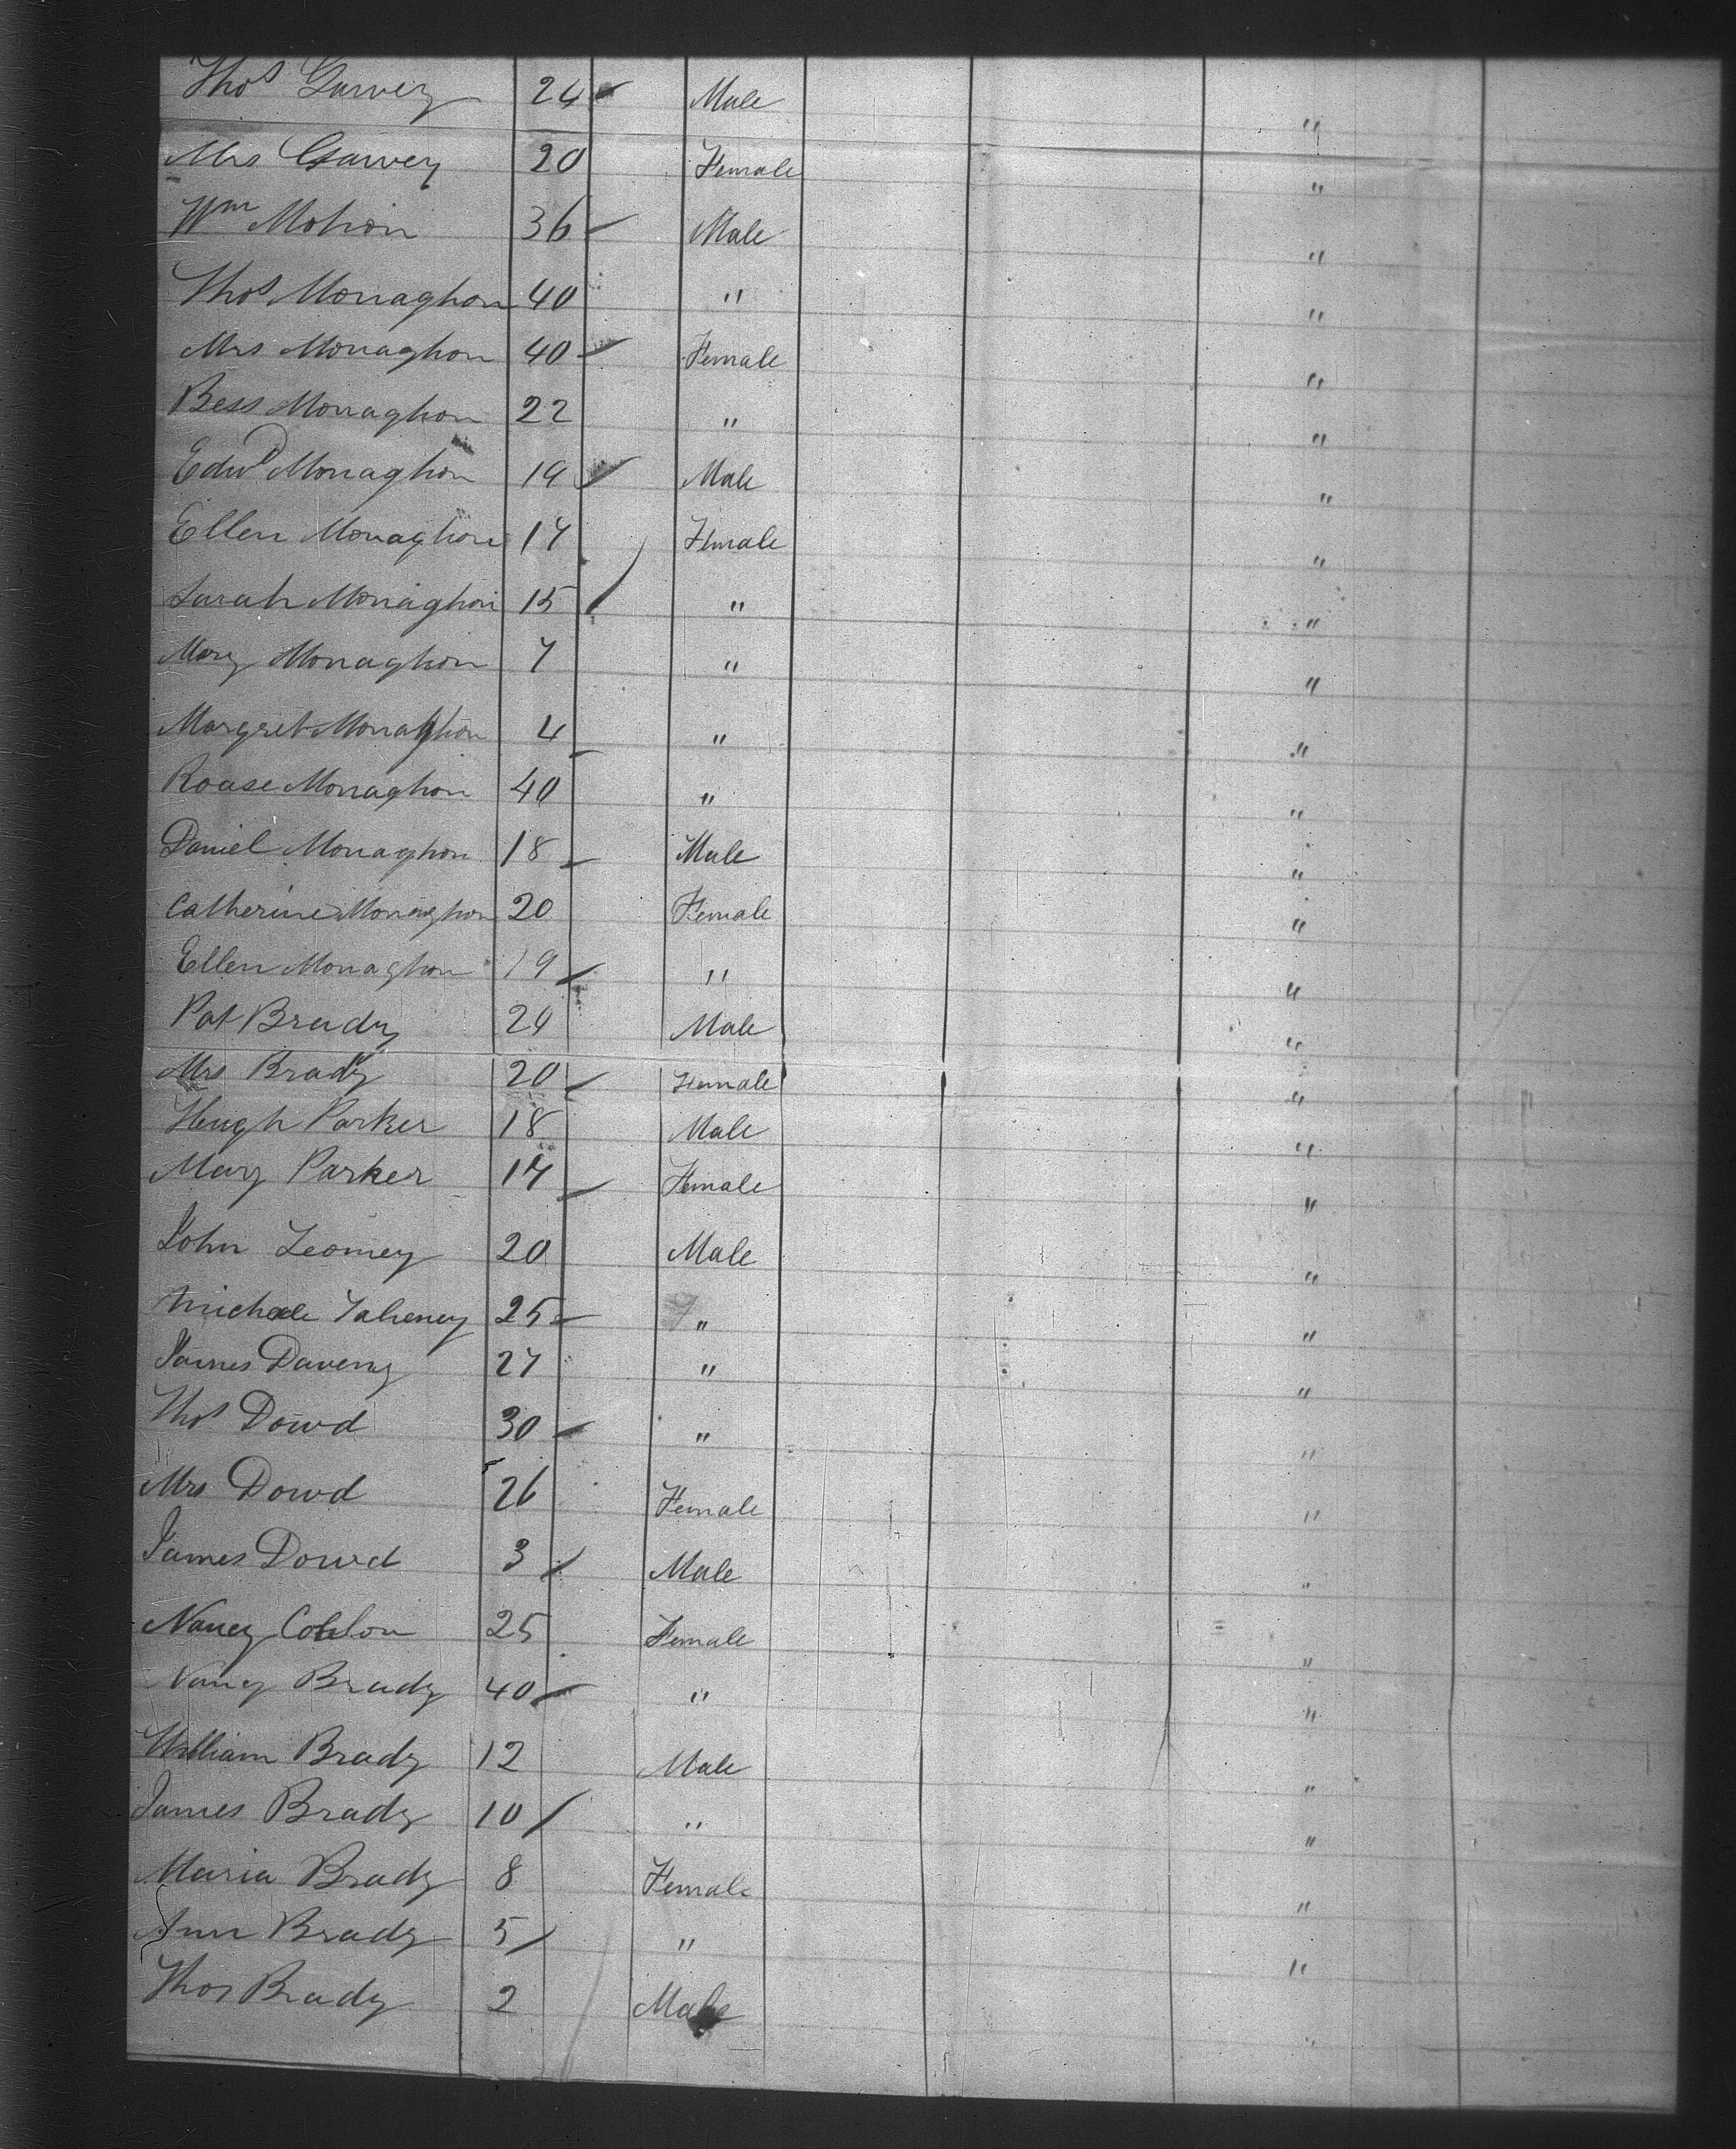 Thos Garvey 24 Male "
Mrs Garvey 20 Female "
Wm Mohon 36 Male "
Thos Monaghon 40 " "
Mrs Monaghon 40 Female "
Bess Monaghon 22 " "
Edwd Monaghon 19 Male "
Ellen Monaghon 17 Female "
Sarah Monaghon 15 " "
Mary Monaghon 7 " "
Margret Monaghon 4 " "
Roase Monaghon 40 " "
Daniel Monaghon 18 Male "
Catherine Monaghon 20 Female "
Ellen Monaghon 19 " "
Pat Brady 24 Male "
Mrs Brady 20 Female "
Hugh Parker 18 Male "
Mary Parker 17 Female "
John 20 Male "
Micheale 25 " "
James Daveny 27 " "
Thos Dowd 30 " "
Mrs Dowd 26 Female "
James Dowd 3 Male "
Nancy 25 Female "
Nancy Brady 40 " "
William Brady 12 Male "
James Brady 10 " "
Maria Brady 8 Female "
Ann Brady 5 " "
Thos Brady 2 Male "